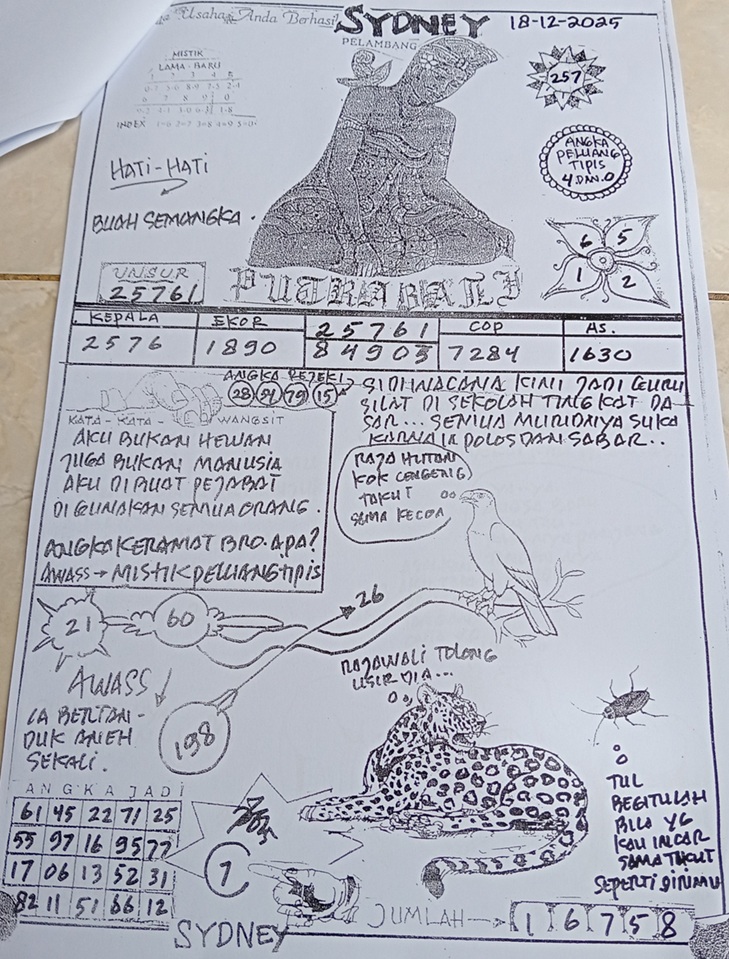 Usaha Anda Berhasil
SYDNEY
18-12-2025
PELAMBANG
MISTIK
LAMA - BARU
1 2 3 4 5
6 7 8 9 0
INDEX 1=6 2=7 3=8 4=9 5=0
257
HATI-HATI
ANGKA
PELUANG
TIPIS
4 DAN 0
BUAH SEMANGKA.
6 5
1 2
UNSUR
25761
PUTRA BALI
KEPALA EKOR 25761 COP AS.
2576 1890 84903 7284 1630
ANGKA REJEKI
28 54 79 15
SIDHNACANA KINI JADI GURU
SILAT DI SEKOLAH TINGKAT DA
SAR... SEMUA MURIDNYA SUKA
KARNA IA POLOS DAN SABAR..
KATA - KATA - WANGSIT
AKU BUKAN HEWAN
JUGA BUKAN MANUSIA
AKU DIBUAT PEJABAT
DI GUNAKAN SEMUA ORANG.
ANGKA KERAMAT BRO. APA?
AWASS → MISTIK PELUANG TIPIS
RAJA HUTAN
KOK CENGENG
TAKUT
SAMA KECOA
21
60
26
AWASS
198
IA BERTAN-
DUK ANEH
SEKALI.
RAJAWALI TOLONG
USIR DIA...
TUL
BEGITULAH
BILA YG
KAU INCAR
SAMA TAKUT
SEPERTI DIRIMU
ANGKA JADI
61 45 22 71 25
55 97 16 95 77
17 06 13 52 31
82 11 51 66 12
7
JUMLAH → 1 6 7 5 8
SYDNEY